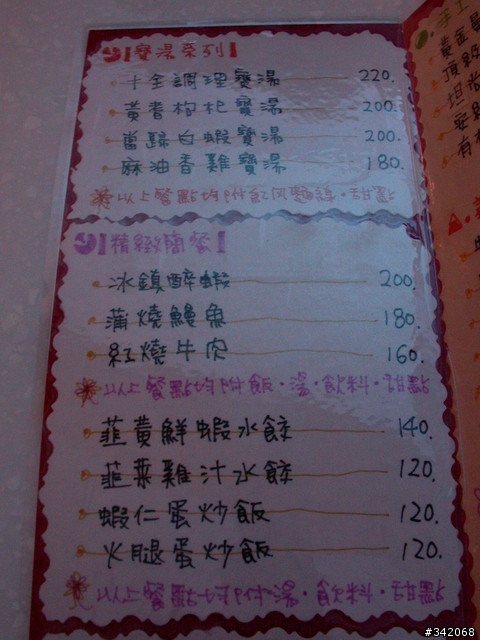 寶湯系列
十全調理寶湯 220.
黃耆枸杞寶湯 200.
當歸白蝦寶湯 200.
麻油香雞寶湯 180.
以上餐點均附飯・甜點
精緻簡餐
冰鎮醉蝦 200.
蒲燒鰻魚 180.
紅燒牛肉 160.
以上餐點均附飯・湯・飲料・甜點
韮黃鮮蝦水餃 140.
韮菜雞汁水餃 120.
蝦仁蛋炒飯 120.
火腿蛋炒飯 120.
以上餐點均附湯・飲料・甜點
#342068